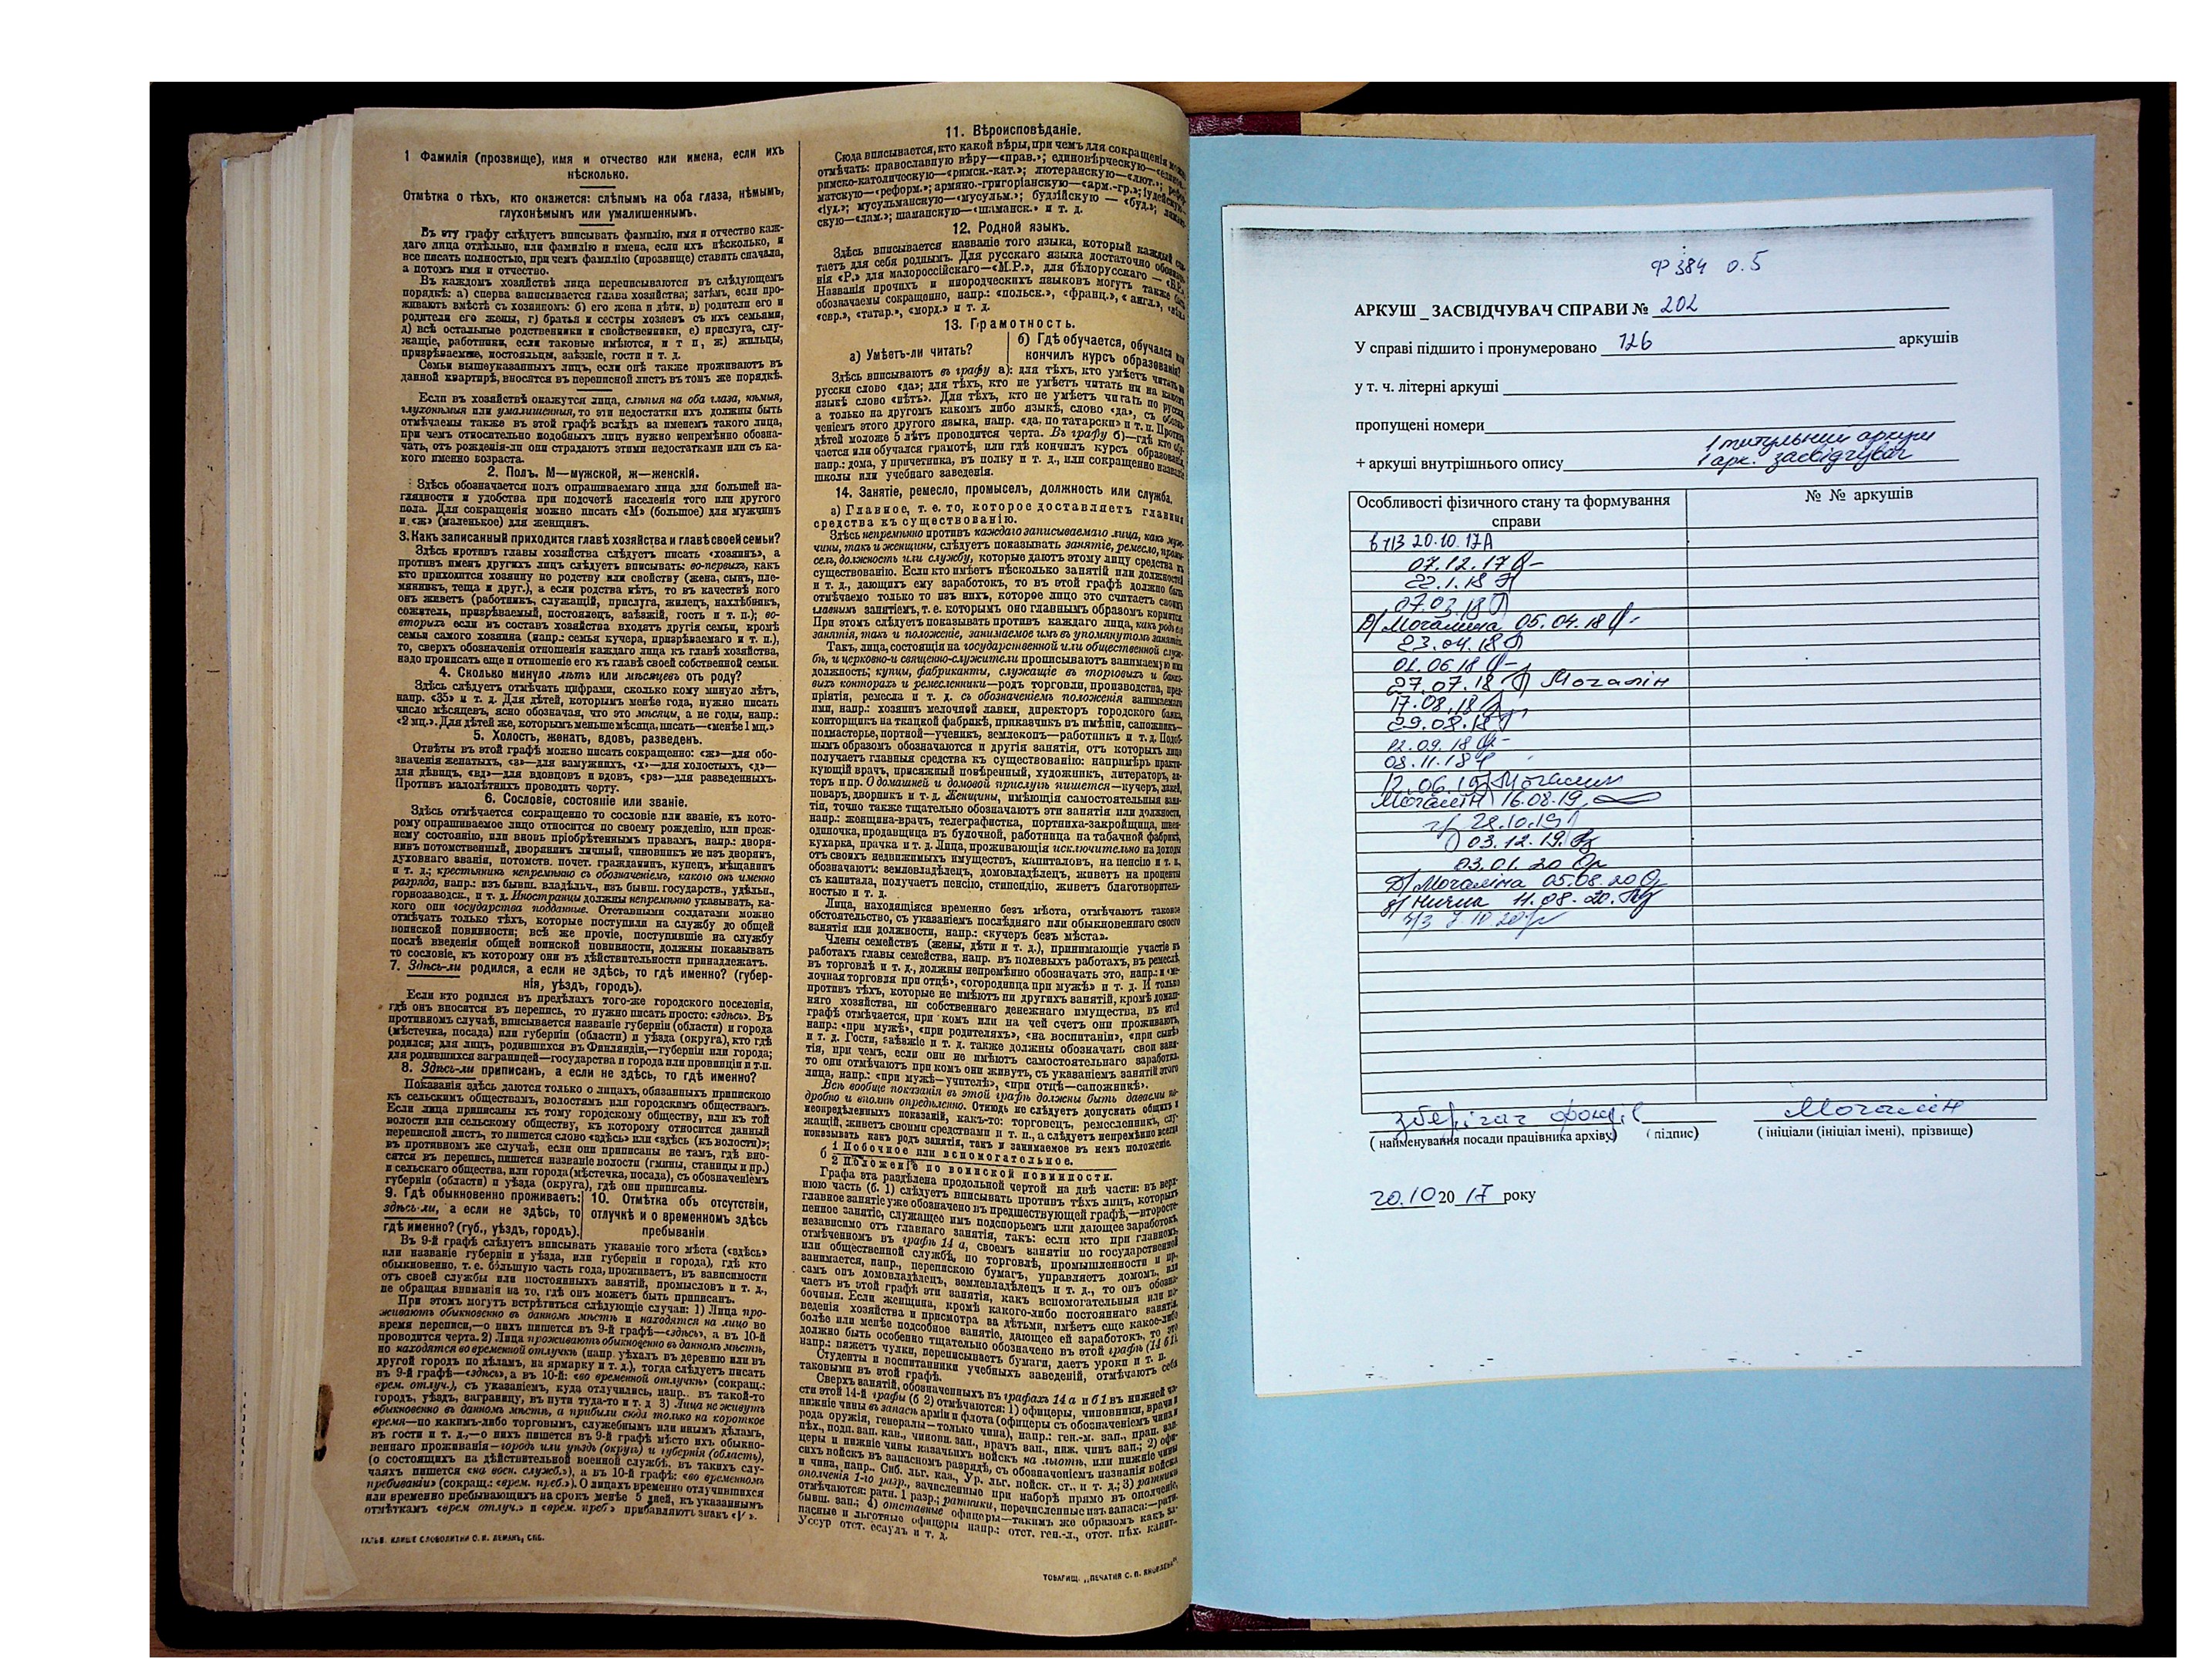 1 Фамилія (прозвище), имя и отчество или имена, если ихъ
нѣсколько.
Отмѣтка о тѣхъ, кто окажется: слѣпымъ на оба глаза, нѣмымъ,
глухонѣмымъ или умалишеннымъ.
Въ эту графу слѣдуетъ вписывать фамилію, имя и отчество каж-
даго лица отдѣльно, или фамилію и имена, если ихъ нѣсколько, и
все писать полностью, при чемъ фамилію (прозвище) ставить сначала,
а потомъ имя и отчество.
Въ каждомъ хозяйствѣ лица переписываются въ слѣдующемъ
порядкѣ: а) сперва записывается глава хозяйства; затѣмъ, если про-
живаютъ вмѣстѣ съ хозяиномъ: б) его жена и дѣти, в) родители его и
родители его жены, г) братья и сестры хозяевъ съ ихъ семьями,
д) всѣ остальные родственники и свойственники, е) прислуга, слу-
жащіе, работники, если таковые имѣются, и т п, ж) жильцы,
призрѣваемые, постояльцы, заѣзжіе, гости и т. д.
Семьи вышеуказанныхъ лицъ, если онѣ также проживаютъ въ
данной квартирѣ, вносятся въ переписной листъ въ томъ же порядкѣ.
Если въ хозяйствѣ окажутся лица, слѣпыя на оба глаза, нѣмыя,
глухонѣмыя или умалишенныя, то эти недостатки ихъ должны быть
отмѣчаемы также въ этой графѣ вслѣдъ за именемъ такого лица,
при чемъ относительно подобныхъ лицъ нужно непремѣнно обозна-
чать, отъ рожденія-ли они страдаютъ этими недостатками или съ ка-
кого именно возраста.
2. Полъ. М—мужской, ж—женскій.
Здѣсь обозначается полъ опрашиваемаго лица для большей на-
глядности и удобства при подсчетѣ населенія того или другого
пола. Для сокращенія можно писать «М» (большое) для мужчинъ
и «ж» (маленькое) для женщинъ.
3. Какъ записанный приходится главѣ хозяйства и главѣ своей семьи?
Здѣсь противъ главы хозяйства слѣдуетъ писать «хозяинъ», а
противъ именъ другихъ лицъ слѣдуетъ вписывать: во-первыхъ, какъ
кто приходится хозяину по родству или свойству (жена, сынъ, пле-
мянникъ, теща и друг.), а если родства нѣтъ, то въ качествѣ кого
онъ живетъ (работникъ, служащій, прислуга, жилецъ, нахлѣбникъ,
сожитель, призрѣваемый, постоялецъ, заѣзжій, гость и т. п.); во-
вторыхъ если въ составъ хозяйства входятъ другія семьи, кромѣ
семьи самого хозяина (напр.: семья кучера, призрѣваемаго и т. п.),
то, сверхъ обозначенія отношенія каждаго лица къ главѣ хозяйства,
надо прописать еще и отношеніе его къ главѣ своей собственной семьи.
4. Сколько минуло лѣтъ или мѣсяцевъ отъ роду?
Здѣсь слѣдуетъ отмѣчать цифрами, сколько кому минуло лѣтъ,
напр. «35» и т. д. Для дѣтей, которымъ менѣе года, нужно писать
число мѣсяцевъ, ясно обозначая, что это мѣсяцы, а не годы, напр.:
«2 мц.». Для дѣтей же, которымъ меньше мѣсяца, писать—«менѣе 1 мц.»
5. Холостъ, женатъ, вдовъ, разведенъ.
Отвѣты въ этой графѣ можно писать сокращенно: «ж»—для обо-
значенія женатыхъ, «з»—для замужнихъ, «х»—для холостыхъ, «д»—
для дѣвицъ, «вд»—для вдовцовъ и вдовъ, «рз»—для разведенныхъ.
Противъ малолѣтнихъ проводить черту.
6. Сословіе, состояніе или званіе.
Здѣсь отмѣчается сокращенно то сословіе или званіе, къ кото-
рому опрашиваемое лицо относится по своему рожденію, или преж-
нему состоянію, или вновь пріобрѣтеннымъ правамъ, напр.: дворя-
нинъ потомственный, дворянинъ личный, чиновникъ не изъ дворянъ,
духовнаго званія, потомств. почет. гражданинъ, купецъ, мѣщанинъ
и т. д.; крестьянинъ непремѣнно съ обозначеніемъ, какого онъ именно
разряда, напр.: изъ бывш. владѣльч., изъ бывш. государств., удѣльн.,
горнозаводск., и т. д. Иностранцы должны непремѣнно указывать, ка-
кого они государства подданные. Отставными солдатами можно
отмѣчать только тѣхъ, которые поступили на службу до общей
воинской повинности; всѣ же прочіе, поступившіе на службу
послѣ введенія общей воинской повинности, должны показывать
то сословіе, къ которому они въ дѣйствительности принадлежатъ.
7. Здѣсь-ли родился, а если не здѣсь, то гдѣ именно? (губер-
нія, уѣздъ, городъ).
Если кто родился въ предѣлахъ того-же городского поселенія,
гдѣ онъ вносится въ перепись, то нужно писать просто: «здѣсь». Въ
противномъ случаѣ, вписывается названіе губерніи (области) и города
(мѣстечка, посада) или губерніи (области) и уѣзда (округа), кто гдѣ
родился; для лицъ, родившихся въ Финляндіи,—губерніи или города;
для родившихся заграницей—государства и города или провинціи и т.п.
8. Здѣсь-ли приписанъ, а если не здѣсь, то гдѣ именно?
Показанія здѣсь даются только о лицахъ, обязанныхъ припискою
къ сельскимъ обществамъ, волостямъ или городскимъ обществамъ.
Если лица приписаны къ тому городскому обществу, или къ той
волости или сельскому обществу, къ которому относится данный
переписной листъ, то пишется слово «здѣсь» или «здѣсь (къ волости)»;
въ противномъ же случаѣ, если они приписаны не тамъ, гдѣ вно-
сятся въ перепись, пишется названіе волости (гмины, станицы и пр.)
и сельскаго общества, или города (мѣстечка, посада), съ обозначеніемъ
губерніи (области) и уѣзда (округа), гдѣ они приписаны.
9. Гдѣ обыкновенно проживаетъ:
здѣсь-ли, а если не здѣсь, то
гдѣ именно? (губ., уѣздъ, городъ).
10. Отмѣтка объ отсутствіи,
отлучкѣ и о временномъ здѣсь
пребываніи
Въ 9-й графѣ слѣдуетъ вписывать указаніе того мѣста («здѣсь»
или названіе губерніи и уѣзда, или губерніи и города), гдѣ кто
обыкновенно, т. е. большую часть года, проживаетъ, въ зависимости
отъ своей службы или постоянныхъ занятій, промысловъ и т. д.,
не обращая вниманія на то, гдѣ онъ можетъ быть приписанъ.
При этомъ могутъ встрѣтиться слѣдующіе случаи: 1) Лица про-
живаютъ обыкновенно въ данномъ мѣстѣ и находятся на лицо во
время переписи,—о нихъ пишется въ 9-й графѣ—«здѣсь», а въ 10-й
проводится черта. 2) Лица проживаютъ обыкновенно въ данномъ мѣстѣ,
но находятся во временной отлучкѣ (напр. уѣхалъ въ деревню или въ
другой городъ по дѣламъ, на ярмарку и т. д.), тогда слѣдуетъ писать
въ 9-й графѣ—«здѣсь», а въ 10-й: «во временной отлучкѣ» (сокращ.:
врем. отлуч.), съ указаніемъ, куда отлучились, напр.. въ такой-то
городъ, уѣздъ, заграницу, въ пути туда-то и т. д 3) Лица не живутъ
обыкновенно въ данномъ мѣстѣ, а прибыли сюда только на короткое
время—по какимъ-либо торговымъ, служебнымъ или инымъ дѣламъ,
въ гости и т. д.,—о нихъ пишется въ 9-й графѣ мѣсто ихъ обыкно-
веннаго проживанія—городъ или уѣздъ (округъ) и губернія (область),
(о состоящихъ на дѣйствительной военной службѣ, въ такихъ слу-
чаяхъ пишется «на воен. служб.»), а въ 10-й графѣ: «во временномъ
пребываніи» (сокращ.: «врем. преб.»). О лицахъ временно отлучившихся
или временно пребывающихъ на срокъ менѣе 5 дней, къ указаннымъ
отмѣткамъ «врем отлуч.» и «врем. преб» прибавляютъ знакъ «V».
ГАЛЬВ. КЛИШЕ СЛОВОЛИТНИ О. И. ЛЕМАНЪ, СПБ.
11. Вѣроисповѣданіе.
Сюда вписывается, кто какой вѣры, при чемъ для сокращенія можно
отмѣчать: православную вѣру—«прав.»; единовѣрческую—
римско-католическую—«римск.-кат.»; лютеранскую—«лют.»;
матскую—«реформ.»; армяно-григоріанскую—«арм.-гр.»; іудейскую—
«іуд.»; мусульманскую—«мусульм.»; буддійскую — «буд.»;
скую—«лам.»; шаманскую—«шаманск.» и т. д.
12. Родной языкъ.
Здѣсь вписывается названіе того языка, который каждый счи-
таетъ для себя роднымъ. Для русскаго языка достаточно
нія «Р.» для малороссійскаго—«М.Р.», для бѣлорусскаго — «Б.Р.»
Названія прочихъ и инородческихъ языковъ могутъ также быть
обозначаемы сокращенно, напр.: «польск.», «франц.», «англ.»,
«евр.», «татар.», «морд.» и т. д.
13. Грамотность.
а) Умѣетъ-ли читать?
б) Гдѣ обучается, обучался или
кончилъ курсъ образованія?
Здѣсь вписываютъ въ графу а): для тѣхъ, кто умѣетъ читать по
русски слово «да»; для тѣхъ, кто не умѣетъ читать ни на какомъ
языкѣ слово «нѣтъ». Для тѣхъ, кто не умѣетъ читать по русски,
а только на другомъ какомъ либо языкѣ, слово «да», съ обозна-
ченіемъ этого другого языка, напр. «да, по татарски» и т. п. Противъ
дѣтей моложе 5 лѣтъ проводится черта. Въ графу б)—гдѣ кто обу-
чается или обучался грамотѣ, или гдѣ кончилъ курсъ образованія,
напр.: дома, у причетника, въ полку и т. д., или сокращенно названіе
школы или учебнаго заведенія.
14. Занятіе, ремесло, промыселъ, должность или служба.
а) Главное, т. е. то, которое доставляетъ главныя
средства къ существованію.
Здѣсь непремѣнно противъ каждаго записываемаго лица, какъ муж-
чины, такъ и женщины, слѣдуетъ показывать занятіе, ремесло, промы-
сель, должность или службу, которые даютъ этому лицу средства къ
существованію. Если кто имѣетъ нѣсколько занятій или должностей
и т. д., дающихъ ему заработокъ, то въ этой графѣ должно быть
отмѣчаемо только то изъ нихъ, которое лицо это считаетъ своимъ
главнымъ занятіемъ, т. е. которымъ оно главнымъ образомъ кормится.
При этомъ слѣдуетъ показывать противъ каждаго лица, какъ родъ его
занятія, такъ и положеніе, занимаемое имъ въ упомянутомъ занятіи.
Такъ, лица, состоящія на государственной или общественной служ-
бѣ, и церковно-и священно-служители прописываютъ занимаемую ими
должность; купцы, фабриканты, служащіе въ торговыхъ и банко-
выхъ конторахъ и ремесленники—родъ торговли, производства, пред-
пріятія, ремесла и т. д. съ обозначеніемъ положенія занимаемаго
ими, напр.: хозяинъ мелочной лавки, директоръ городского банка,
конторщикъ на ткацкой фабрикѣ, приказчикъ въ имѣніи, сапожникъ—
подмастерье, портной—ученикъ, землекопъ—работникъ и т. д. Подоб-
нымъ образомъ обозначаются и другія занятія, отъ которыхъ лицо
получаетъ главныя средства къ существованію: напримѣръ практи-
кующій врачъ, присяжный повѣренный, художникъ, литераторъ, ак-
теръ и пр. О домашней и домовой прислугѣ пишется—кучеръ, лакей,
поваръ, дворникъ и т. д. Женщины, имѣющія самостоятельныя заня-
тія, точно также тщательно обозначаютъ эти занятія или должности,
напр.: женщина-врачъ, телеграфистка, портниха-закройщица, швея-
одиночка, продавщица въ булочной, работница на табачной фабрикѣ,
кухарка, прачка и т. д. Лица, проживающія исключительно на доходы
отъ своихъ недвижимыхъ имуществъ, капиталовъ, на пенсію и т. п.,
обозначаютъ: землевладѣлецъ, домовладѣлецъ, живетъ на проценты
съ капитала, получаетъ пенсію, стипендію, живетъ благотворитель-
ностью и т. д.
Лица, находящіяся временно безъ мѣста, отмѣчаютъ таковое
обстоятельство, съ указаніемъ послѣдняго или обыкновеннаго своего
занятія или должности, напр.: «кучеръ безъ мѣста».
Члены семействъ (жены, дѣти и т. д.), принимающіе участіе въ
работахъ главы семейства, напр. въ полевыхъ работахъ, въ ремеслѣ,
въ торговлѣ и т. д., должны непремѣнно обозначать это, напр.: и «ме-
лочная торговля при отцѣ», «огородница при мужѣ» и т. д. И только
противъ тѣхъ, которые не имѣютъ ни другихъ занятій, кромѣ домаш-
няго хозяйства, ни собственнаго денежнаго имущества, въ этой
графѣ отмѣчается, при комъ или на чей счетъ они проживаютъ,
напр.: «при мужѣ», «при родителяхъ», «на воспитаніи», «при сынѣ»
и т. д. Гости, заѣзжіе и т. д. также должны обозначать свои заня-
тія, при чемъ, если они не имѣютъ самостоятельнаго заработка,
то они отмѣчаютъ при комъ они живутъ, съ указаніемъ занятій этого
лица, напр.: «при мужѣ—учителѣ», «при отцѣ—сапожникѣ».
Всѣ вообще показанія въ этой графѣ должны быть даваемы по-
дробно и вполнѣ опредѣленно. Отнюдь не слѣдуетъ допускать общихъ и
неопредѣленныхъ показаній, какъ-то: торговецъ, ремесленникъ, слу-
жащій, живетъ своими средствами и т. п., а слѣдуетъ непремѣнно всегда
показывать какъ родъ занятія, такъ и занимаемое въ немъ положеніе.
б 1 Побочное или вспомогательное.
2 Положеніе по воинской повинности.
Графа эта раздѣлена продольной чертой на двѣ части: въ верх-
нюю часть (б. 1) слѣдуетъ вписывать противъ тѣхъ лицъ, которыхъ
главное занятіе уже обозначено въ предшествующей графѣ,—второсте-
пенное занятіе, служащее имъ подспорьемъ или дающее заработокъ,
независимо отъ главнаго занятія, такъ: если кто при главномъ,
отмѣченномъ въ графѣ 14 а, своемъ занятіи по государственной
или общественной службѣ, по торговлѣ, промышленности и пр.,
занимается, напр., перепискою бумагъ, управляетъ домомъ, или
самъ онъ домовладѣлецъ, землевладѣлецъ и т. д., то онъ обозна-
чаетъ въ этой графѣ эти занятія, какъ вспомогательныя или по-
бочныя. Если женщина, кромѣ какого-либо постояннаго занятія,
веденія хозяйства и присмотра за дѣтьми, имѣетъ еще какое-либо
болѣе или менѣе подсобное занятіе, дающее ей заработокъ, то это
должно быть особенно тщательно обозначено въ этой графѣ (14 б 1),
напр.: вяжетъ чулки, переписываетъ бумаги, даетъ уроки и т. п.
Студенты и воспитанники учебныхъ заведеній, отмѣчаютъ себя
таковыми въ этой графѣ.
Сверхъ занятій, обозначенныхъ въ графахъ 14 а и б 1 въ нижней ча-
сти этой 14-й графы (б 2) отмѣчаются: 1) офицеры, чиновники, врачи и
нижніе чины въ запасѣ арміи и флота (офицеры съ обозначеніемъ чина и
рода оружія, генералы—только чина), напр.: ген.-м. зап., прап. зап.
пѣх., подп. зап. кав., чиновн. зап., врачъ зап., ниж. чинъ зап.; 2) офи-
церы и нижніе чины казачьихъ войскъ на льготѣ, или нижніе чины
сихъ войскъ въ запасномъ разрядѣ, съ обозначеніемъ названія войска
и чина, напр., Сиб. льг. каз., Ур. льг. войск. ст., и т. д.; 3) ратники
ополченія 1-го разр., зачисленные при наборѣ прямо въ ополченіе,
отмѣчаются: ратн. 1 разр.; ратники, перечисленные изъ запаса:—ратн.
бывш. зап.; 4) отставные офицеры—такимъ же образомъ какъ за-
пасные и льготные офицеры напр.: отст. ген.-л., отст. пѣх. капит.,
Уссур отст. есаулъ и т. д.
ТОВАРИЩ. „ПЕЧАТНЯ С. П. ЯКОВЛЕВА“.
Ф 384 о. 5
АРКУШ _ ЗАСВІДЧУВАЧ СПРАВИ № 202
У справі підшито і пронумеровано 126 аркушів
у т. ч. літерні аркуші
пропущені номери
1 титульний аркуш
+ аркуші внутрішнього опису 1 арк. засвідчувач
Особливості фізичного стану та формування справи
№ № аркушів
20.10.17
07.12.17
22.1.18
07.03.18
Мочалина 05.04.18
23.04.18
01.06.18
27.07.18 Мочалін
17.08.18
29.08.18
12.09.18
08.11.18
12.06.19 Мочалин
Мочалін 16.08.19
28.10.19
03.12.19
03.01.20
Мочаліна 05.08.20
11.08.20
зберігач фондів Мочалін
( найменування посади працівника архіву) ( підпис) ( ініціали (ініціал імені), прізвище)
20.10 2017 року